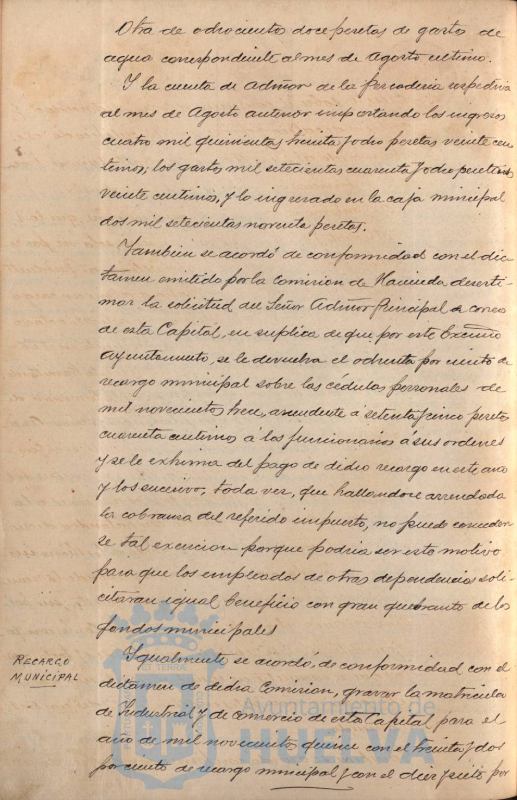 Otra de ochocientos doce pesetas de gastos de
agua correspondiente al mes de Agosto ultimo.
Y la cuenta de Admor de la Pescaderia respectiva
al mes de Agosto anterior importando los ingresos
cuatro mil quinientas treinta y ocho pesetas veinte cen
timos; los gastos mil setecientas cuarenta y ocho pesetas
veinte centimos, y lo ingresado en la caja municipal
dos mil setecientas noventa pesetas.
Tambien se acordó de conformidad con el dic
tamen emitido por la Comision de Hacienda desesti-
mar la solicitud del Señor Admor Principal de correos
de esta Capital, en suplica de que por este Excmo
Ayuntamiento, se le devuelva el ochenta por ciento de
recargo municipal sobre las cédulas personales de
mil novecientos trece, ascendente á setenta y cinco pesetas
cuarenta centimos á los funcionarios á sus ordenes
y se le exhima del pago de dicho recargo en este año
y los sucesivo; toda vez, que hallandose arrendada
la cobranza del referido impuesto, no puede conceder
se tal exencion porque podria ser esto motivo
para que los empleados de otras dependencias soli-
citaran igual beneficio con gran quebranto de los
fondos municipales
RECARGO
MUNICIPAL
Igualmente se acordó, de conformidad con el
dictamen de dicha Comision, gravar la matricula
de Industrial y de comercio de esta Capital para el
año de mil novecientos quince con el treinta y dos
por ciento de recargo municipal y con el diez y siete por
Ayuntamiento de
HUELVA